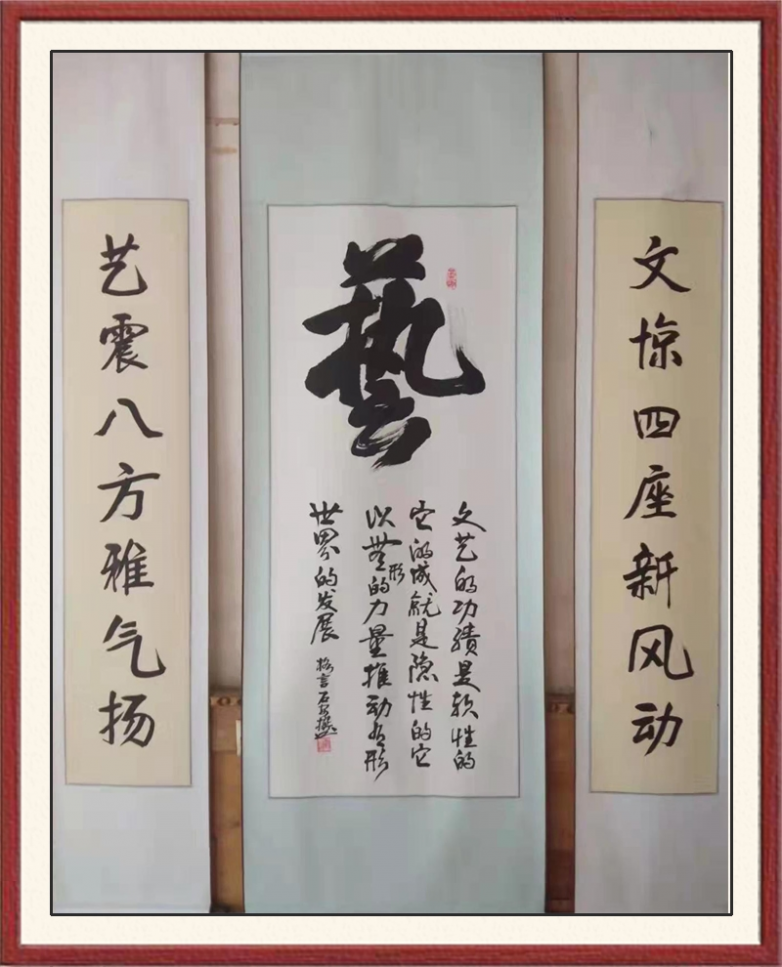 文惊四座新风动
藝
文艺的功绩是软性的
它的成就是隐性的它
以无形的力量推动有形
世界的发展
艺震八方雅气扬